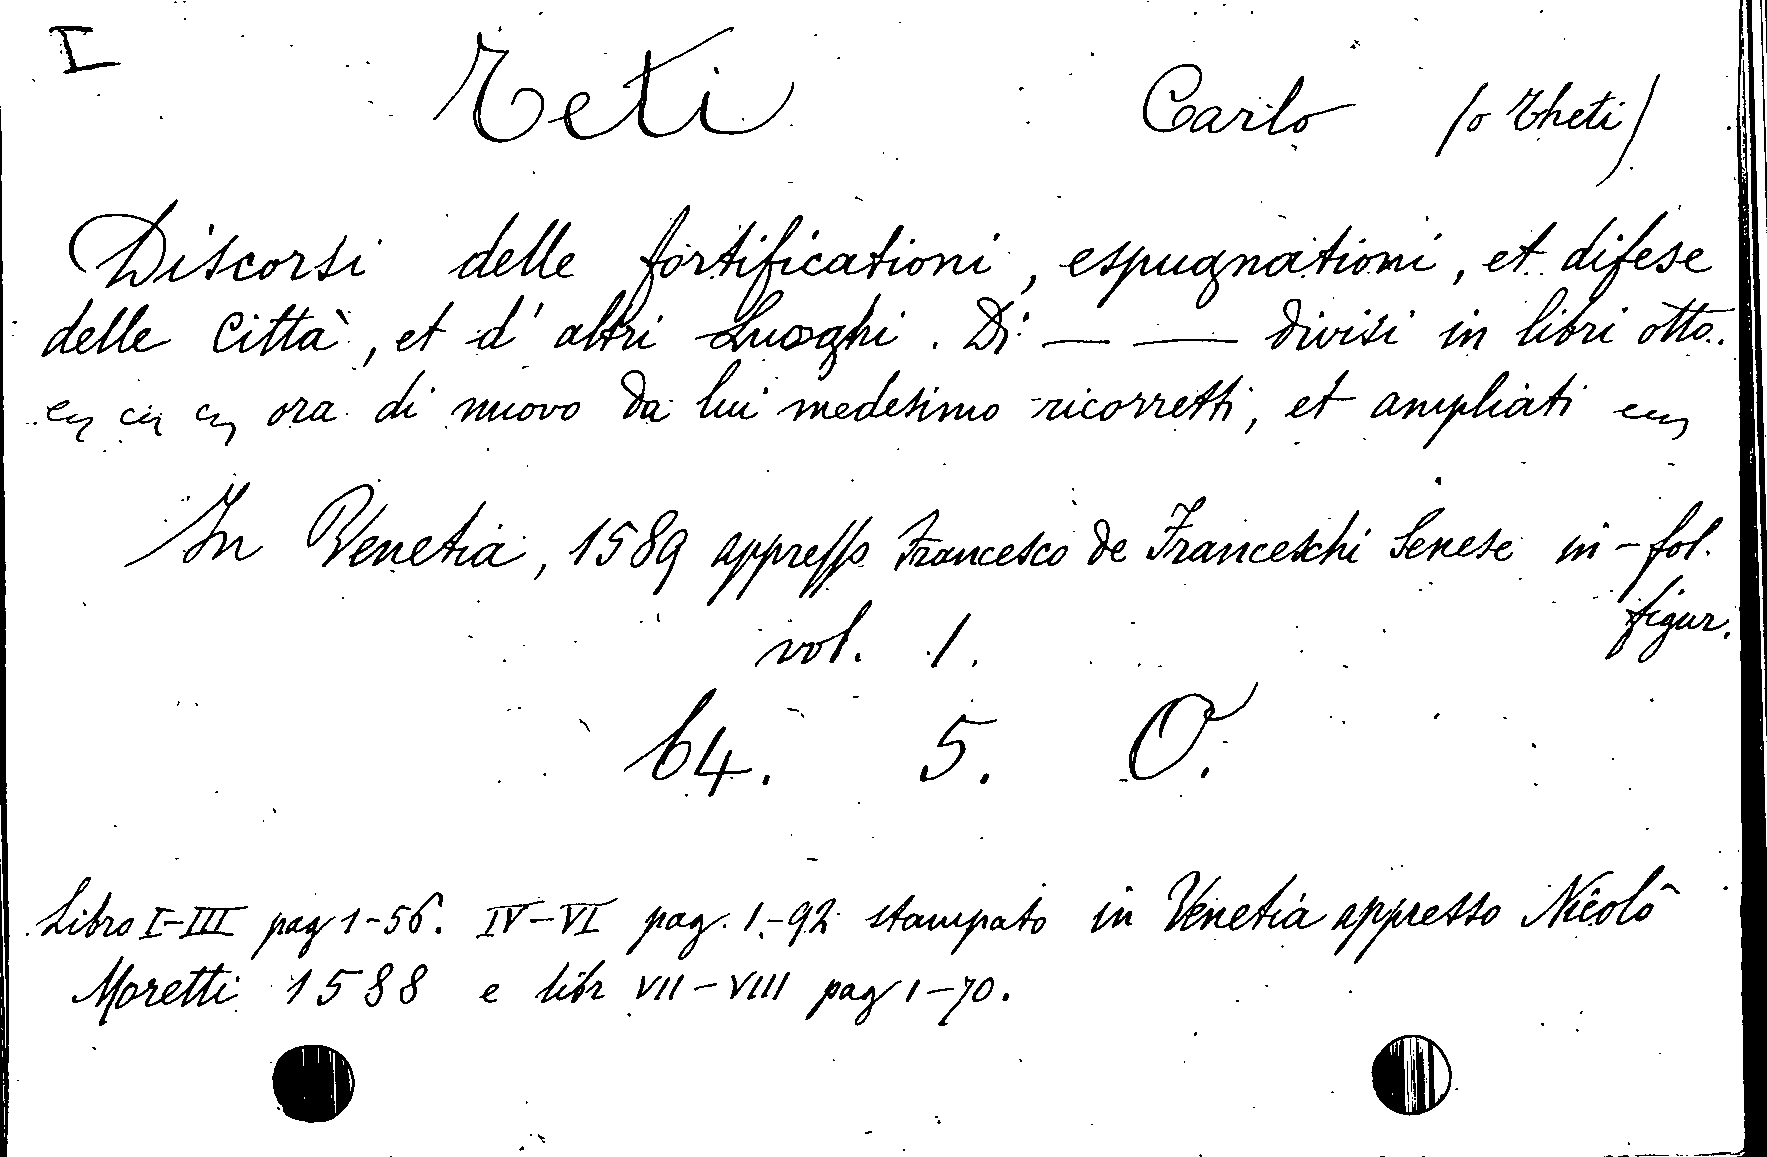 I
Teti Carlo (o Theti)
Discorsi delle fortificationi, espugnationi, et difese
delle Città, et d'altri Luoghi. Di — — divisi in libri otto..
ora di nuovo da lui medesimo ricorretti, et ampliati
In Venetia, 1589 appresso Francesco de Franceschi Senese in-fol.
figur.
vol. 1.
64. 5. O.
Libro I-III pag 1-56. IV-VI pag. 1-92 stampato in Venetia appresso Nicolò
Moretti 1588 e libr VII-VIII pag 1-70.